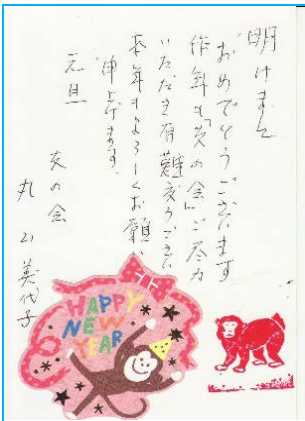 明けまして
おめでとうございます
昨年も「友の会」ご尽力
いただき有難度うござい
本年もよろしくお願い
申上げます。
元旦
友の会
丸山美代子
HAPPY
NEW
YEAR